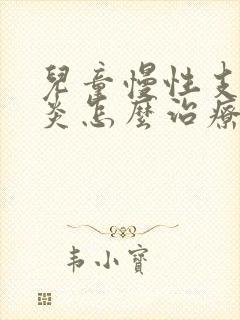 兒童慢性支
炎怎麼治療
韦小寶